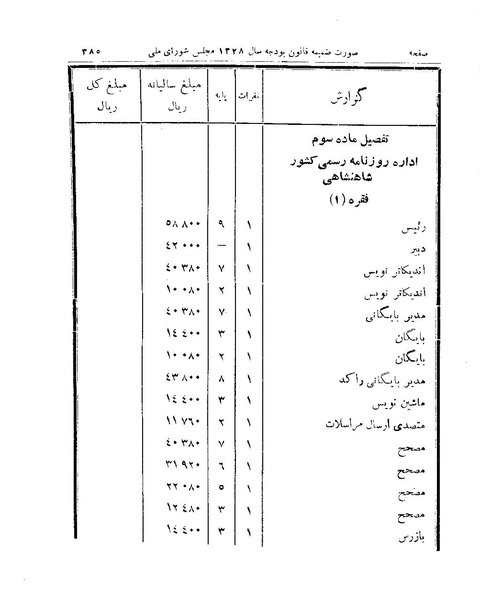 صفحه صورت ضمیمه قانون بودجه سال ۱۳۲۸ مجلس شورای ملی ۳۸۵
گزارش نفرات پایه مبلغ سالیانه ریال مبلغ کل ریال
تفصیل ماده سوم
اداره روزنامه رسمی کشور
شاهنشاهی
فقره (۱)
رئیس ۱ ۹ ۵۸ ۸۰۰
دبیر ۱ — ۴۲ ۰۰۰
اندیکاتر نویس ۱ ۷ ۴۰ ۳۸۰
اندیکاتر نویس ۱ ۲ ۱۰ ۰۸۰
مدیر بایگانی ۱ ۷ ۴۰ ۳۸۰
بایگان ۱ ۳ ۱۴ ۴۰۰
بایگان ۱ ۲ ۱۰ ۰۸۰
مدیر بایگانی راکد ۱ ۸ ۴۳ ۸۰۰
ماشین نویس ۱ ۳ ۱۴ ۴۰۰
متصدی ارسال مراسلات ۱ ۲ ۱۱ ۷۶۰
مصحح ۱ ۷ ۴۰ ۳۸۰
مصحح ۱ ۶ ۳۱ ۹۲۰
مصحح ۱ ۵ ۲۲ ۰۸۰
مصحح ۱ ۳ ۱۲ ۴۸۰
بازرس ۱ ۳ ۱۴ ۴۰۰